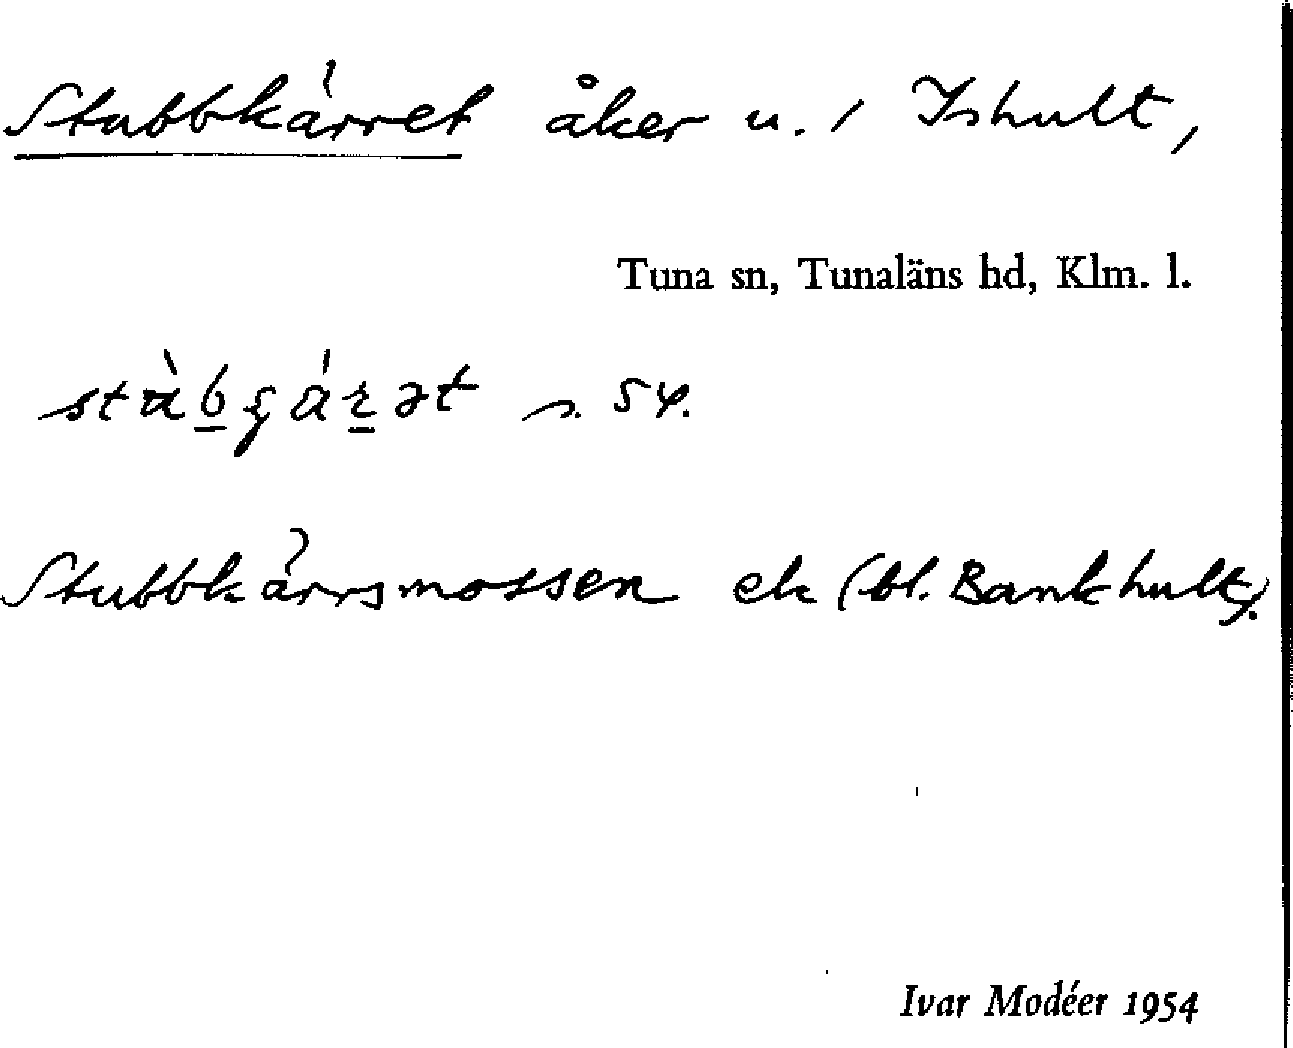 Stubbkärret åker u. / Ishult,
Tuna sn, Tunaläns hd, Klm. l.
s. 54.
Stubbkärrsmossen ek (bl. Bankhult).
Ivar Modéer 1954